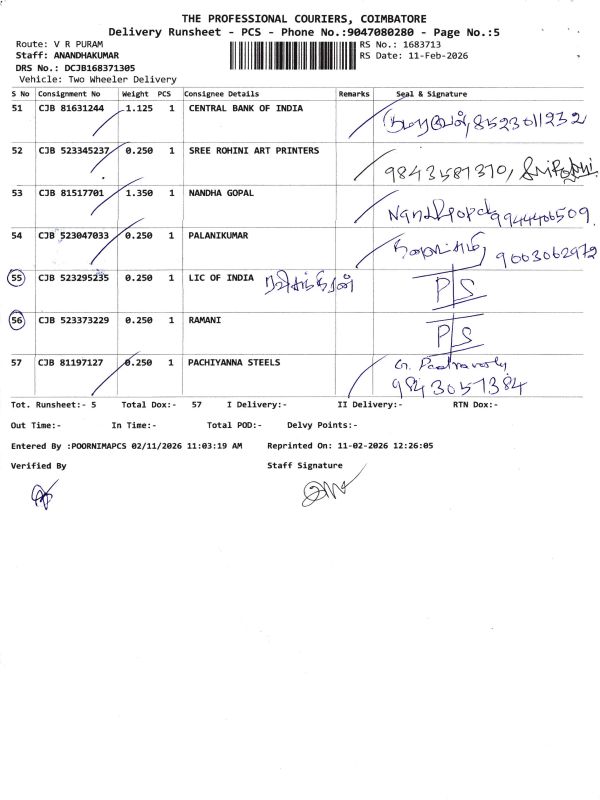 THE PROFESSIONAL COURIERS, COIMBATORE
Delivery Runsheet - PCS - Phone No.:9047080280 - Page No.:5
Route: V R PURAM RS No.: 1683713
Staff: ANANDHAKUMAR RS Date: 11-Feb-2026
DRS No.: DCJB168371305
Vehicle: Two Wheeler Delivery
S No Consignment No Weight PCS Consignee Details Remarks Seal & Signature
51 CJB 81631244 1.125 1 CENTRAL BANK OF INDIA 8523011232
52 CJB 523345237 0.250 1 SREE ROHINI ART PRINTERS 9843581310,
53 CJB 81517701 1.350 1 NANDHA GOPAL Nandhgopal 9944406509
54 CJB 523047033 0.250 1 PALANIKUMAR 9003062972
55 CJB 523295235 0.250 1 LIC OF INDIA P/S
56 CJB 523373229 0.250 1 RAMANI P/S
57 CJB 81197127 0.250 1 PACHIYANNA STEELS G.
9843057384
Tot. Runsheet:- 5 Total Dox:- 57 I Delivery:- II Delivery:- RTN Dox:-
Out Time:- In Time:- Total POD:- Delvy Points:-
Entered By :POORNIMAPCS 02/11/2026 11:03:19 AM Reprinted On: 11-02-2026 12:26:05
Verified By Staff Signature